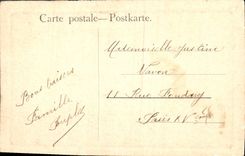 Carte postale — Postkarte.
Mademoiselle Justine
Vavon
11 Rue
Paris XV
Bons baisers
Famille